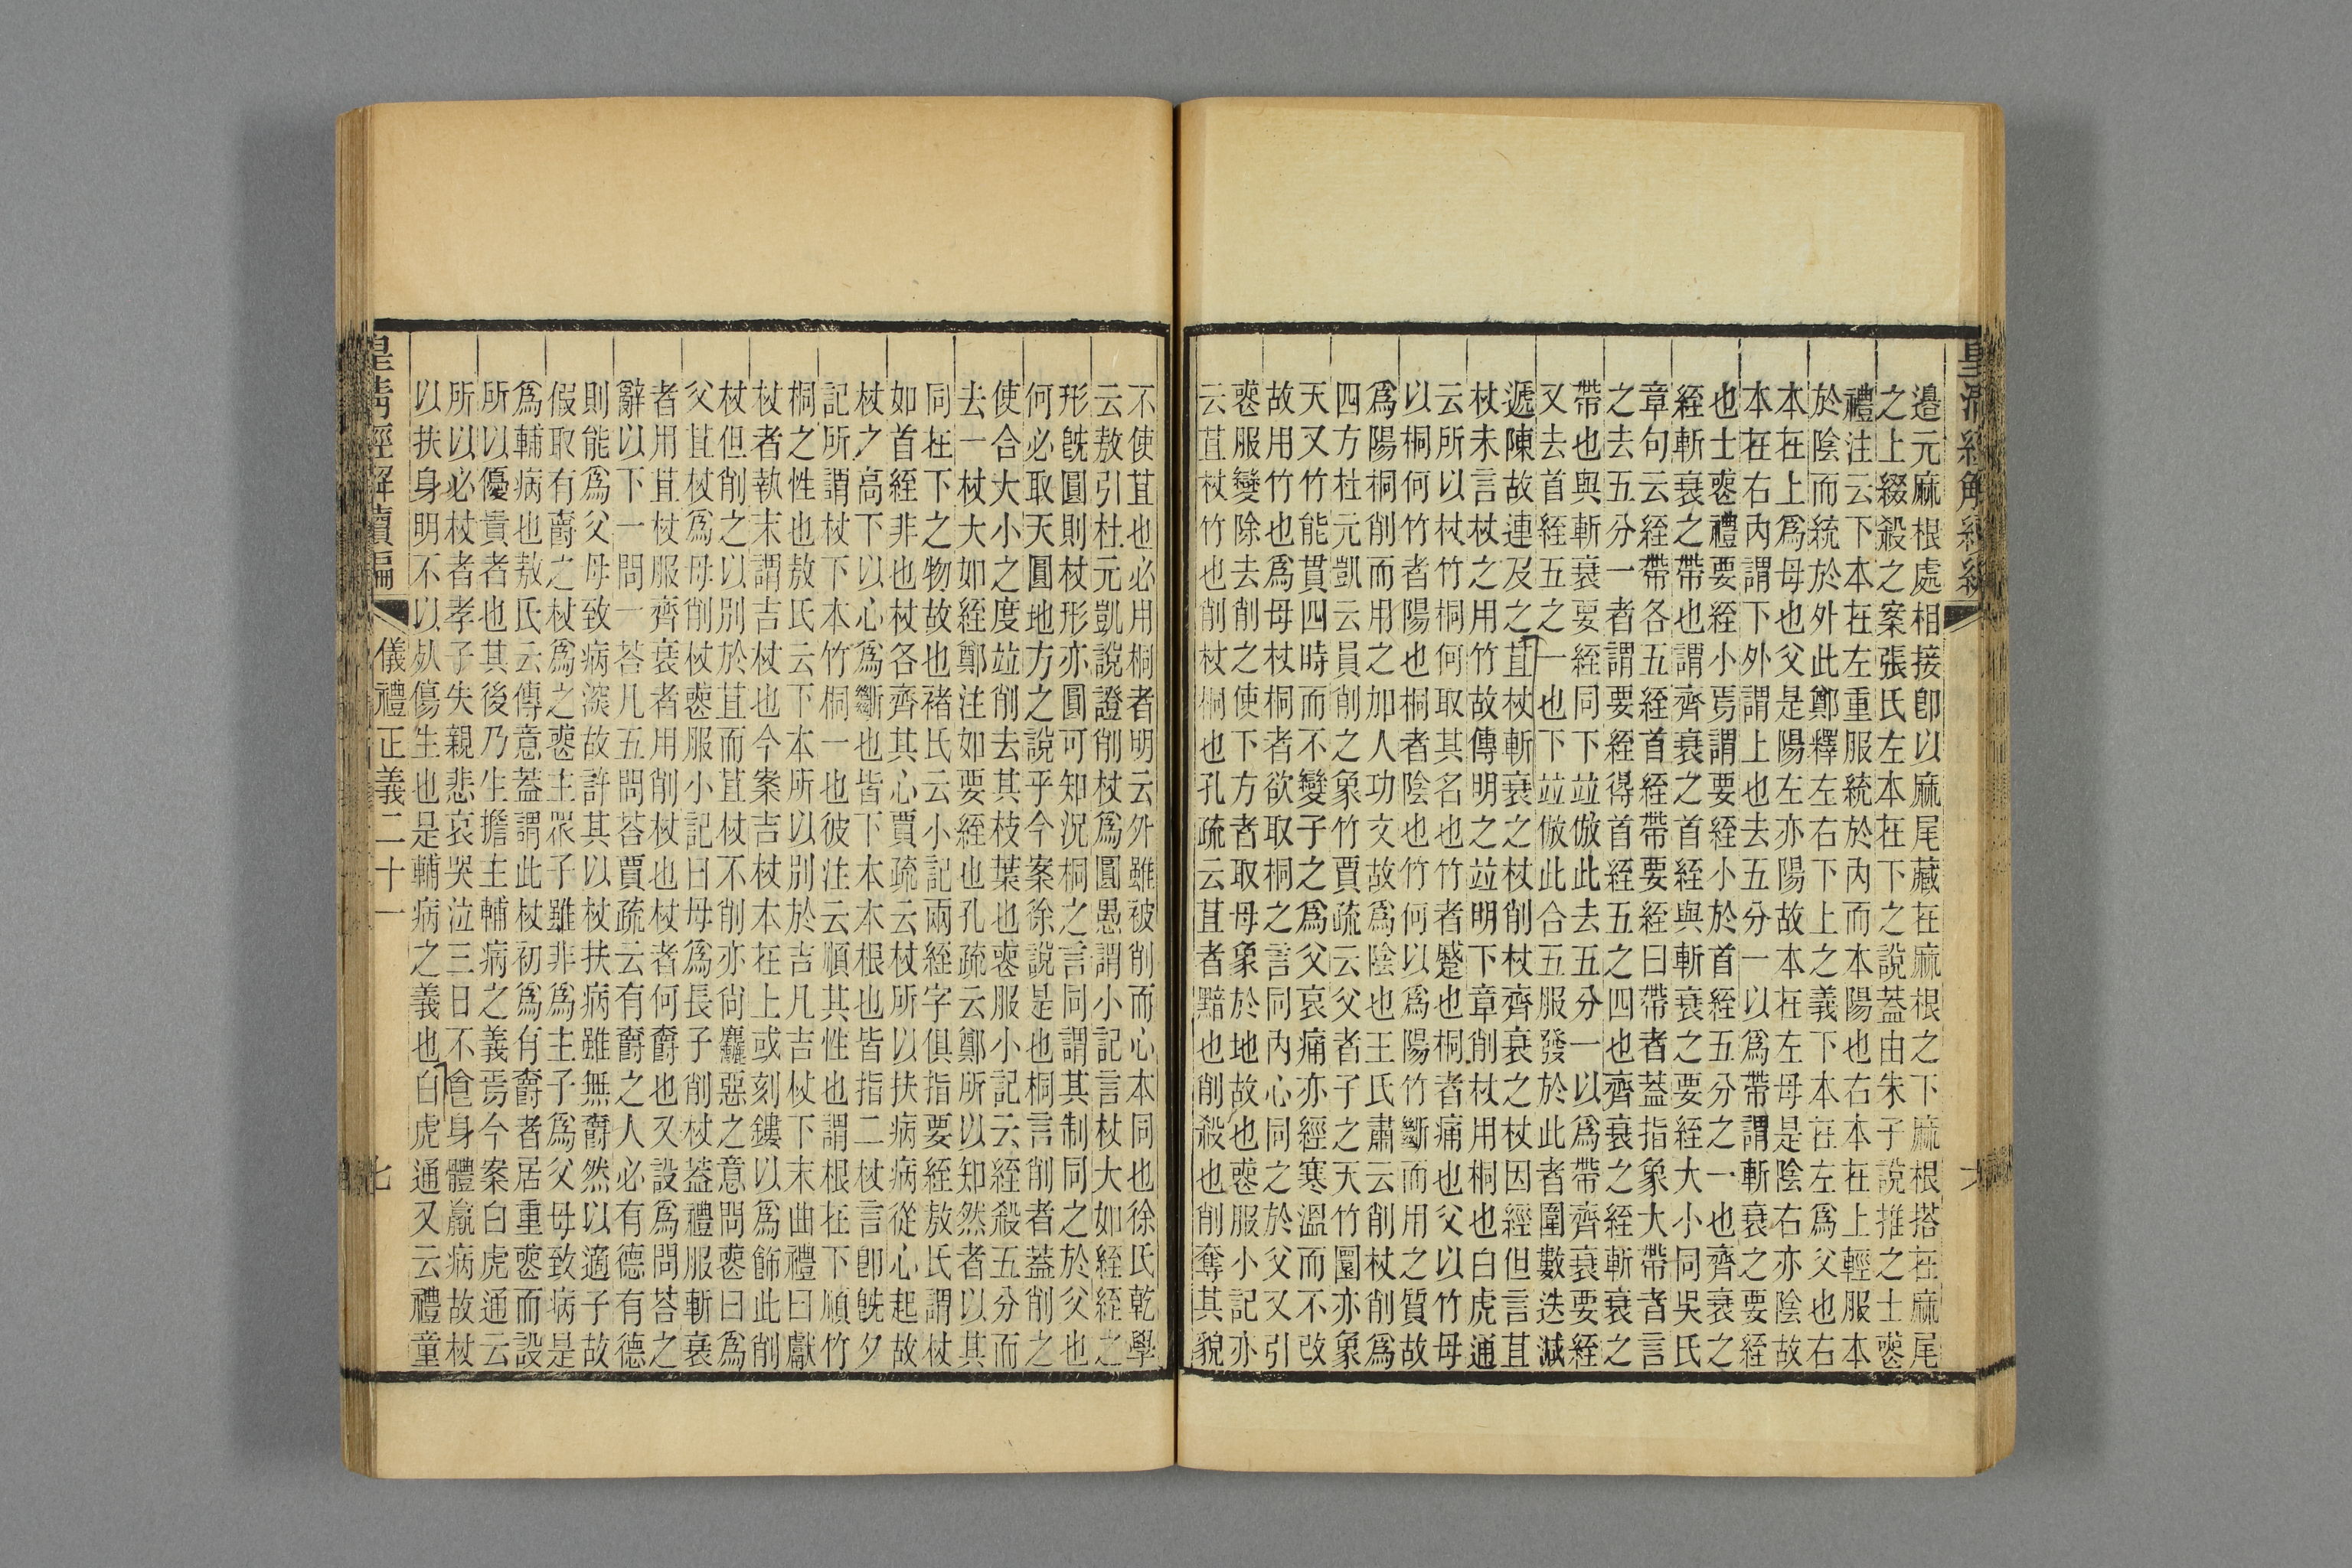 邉元麻根處相接卽以麻尾藏在麻根之下麻根搭在麻尾
之上綴殺之案張氏左本在下之說蓋由朱子說推之士喪
禮注云下本在左重服統於內而本陽也右本在上輕服本
於陰而統於外此鄭釋左右下上之義下本在左爲父也右
本在上爲母也父是陽左亦陽故本在左母是陰右亦陰故
本在右內謂下外謂上也去五分一以爲帶謂斬衰之要絰
也士喪禮要絰小焉謂要絰小於首絰五分之一也齊衰之
絰斬衰之帶也謂齊衰之首絰與斬衰之要絰大小同吳氏
章句云絰帶各五絰首絰帶要絰曰帶者蓋指象大帶者言
之去五分一者謂要絰得首絰五之四也齊衰之絰斬衰之
帶也與斬衰要絰同下竝倣此去五分一以爲帶齊衰要絰
又去首絰五之一也下竝倣此合五服發於此者圍數迭減
遞陳故連及之苴杖斬衰之杖削杖齊衰之杖因經但言苴
杖未言杖之用竹故傳明之竝明下章削杖用桐也白虎通
云所以杖竹桐何取其名也竹者蹙也桐者痛也父以竹母
以桐何竹者陽也桐者陰也竹何以爲陽竹斷而用之質故
爲陽桐削而用之加人功文故爲陰也王氏肅云削杖削爲
四方杜元凱云員削之象竹賈疏云父者子之天竹圓亦象
天又竹能貫四時而不變子之爲父哀痛亦經寒溫而不改
故用竹也爲母杖桐者欲取桐之言同內心同之於父又引
喪服變除去削之使下方者取母象於地故也喪服小記亦
云苴杖竹也削杖桐也孔疏云苴者黯也削殺也削奪其貌
不使苴也必用桐者明云外雖被削而心本同也徐氏乾學
云敖引杜元凱說證削杖爲圓愚謂小記言杖大如絰絰之
形旣圓則杖形亦圓可知況桐之言同謂其制同之於父也
何必取天圓地方之說乎今案徐說是也桐言削者蓋削之
使合大小之度竝削去其枝葉也喪服小記云絰殺五分而
去一杖大如絰鄭注如要絰也孔疏云鄭所以知然者以其
同在下之物故也褚氏云小記兩絰字俱指要絰敖氏謂杖
如首絰非也杖各齊其心賈疏云杖所以扶病病從心起故
杖之高下以心爲斷也皆下本本根也皆指二杖言卽旣夕
記所謂杖下本竹桐一也彼注云順其性也謂根在下順竹
桐之性也敖氏云下本所以別於吉凡吉杖下末曲禮曰獻
杖者執末謂吉杖也今案吉杖本在上或刻鏤以爲飾此削
杖但削之以別於苴而苴杖不削亦尙麤惡之意問喪曰爲
父苴杖爲母削杖喪服小記曰母爲長子削杖蓋禮服斬衰
者用苴杖服齊衰者用削杖也杖者何爵也又設爲問荅之
辭以下一問一荅凡五問荅賈疏云有爵之人必有德有德
則能爲父母致病深故許其以杖扶病雖無爵然以適子故
假取有爵之杖爲之喪主眾子雖非爲主子爲父母致病是
爲輔病也敖氏云傳意蓋謂此杖初爲有爵者居重喪而設
所以優貴者也其後乃生擔主輔病之義焉今案白虎通云
所以必杖者孝子失親悲哀哭泣三日不食身體羸病故杖
以扶身明不以死傷生也是輔病之義也白虎通又云禮童
皇清經解續編 儀禮正義二十一 七